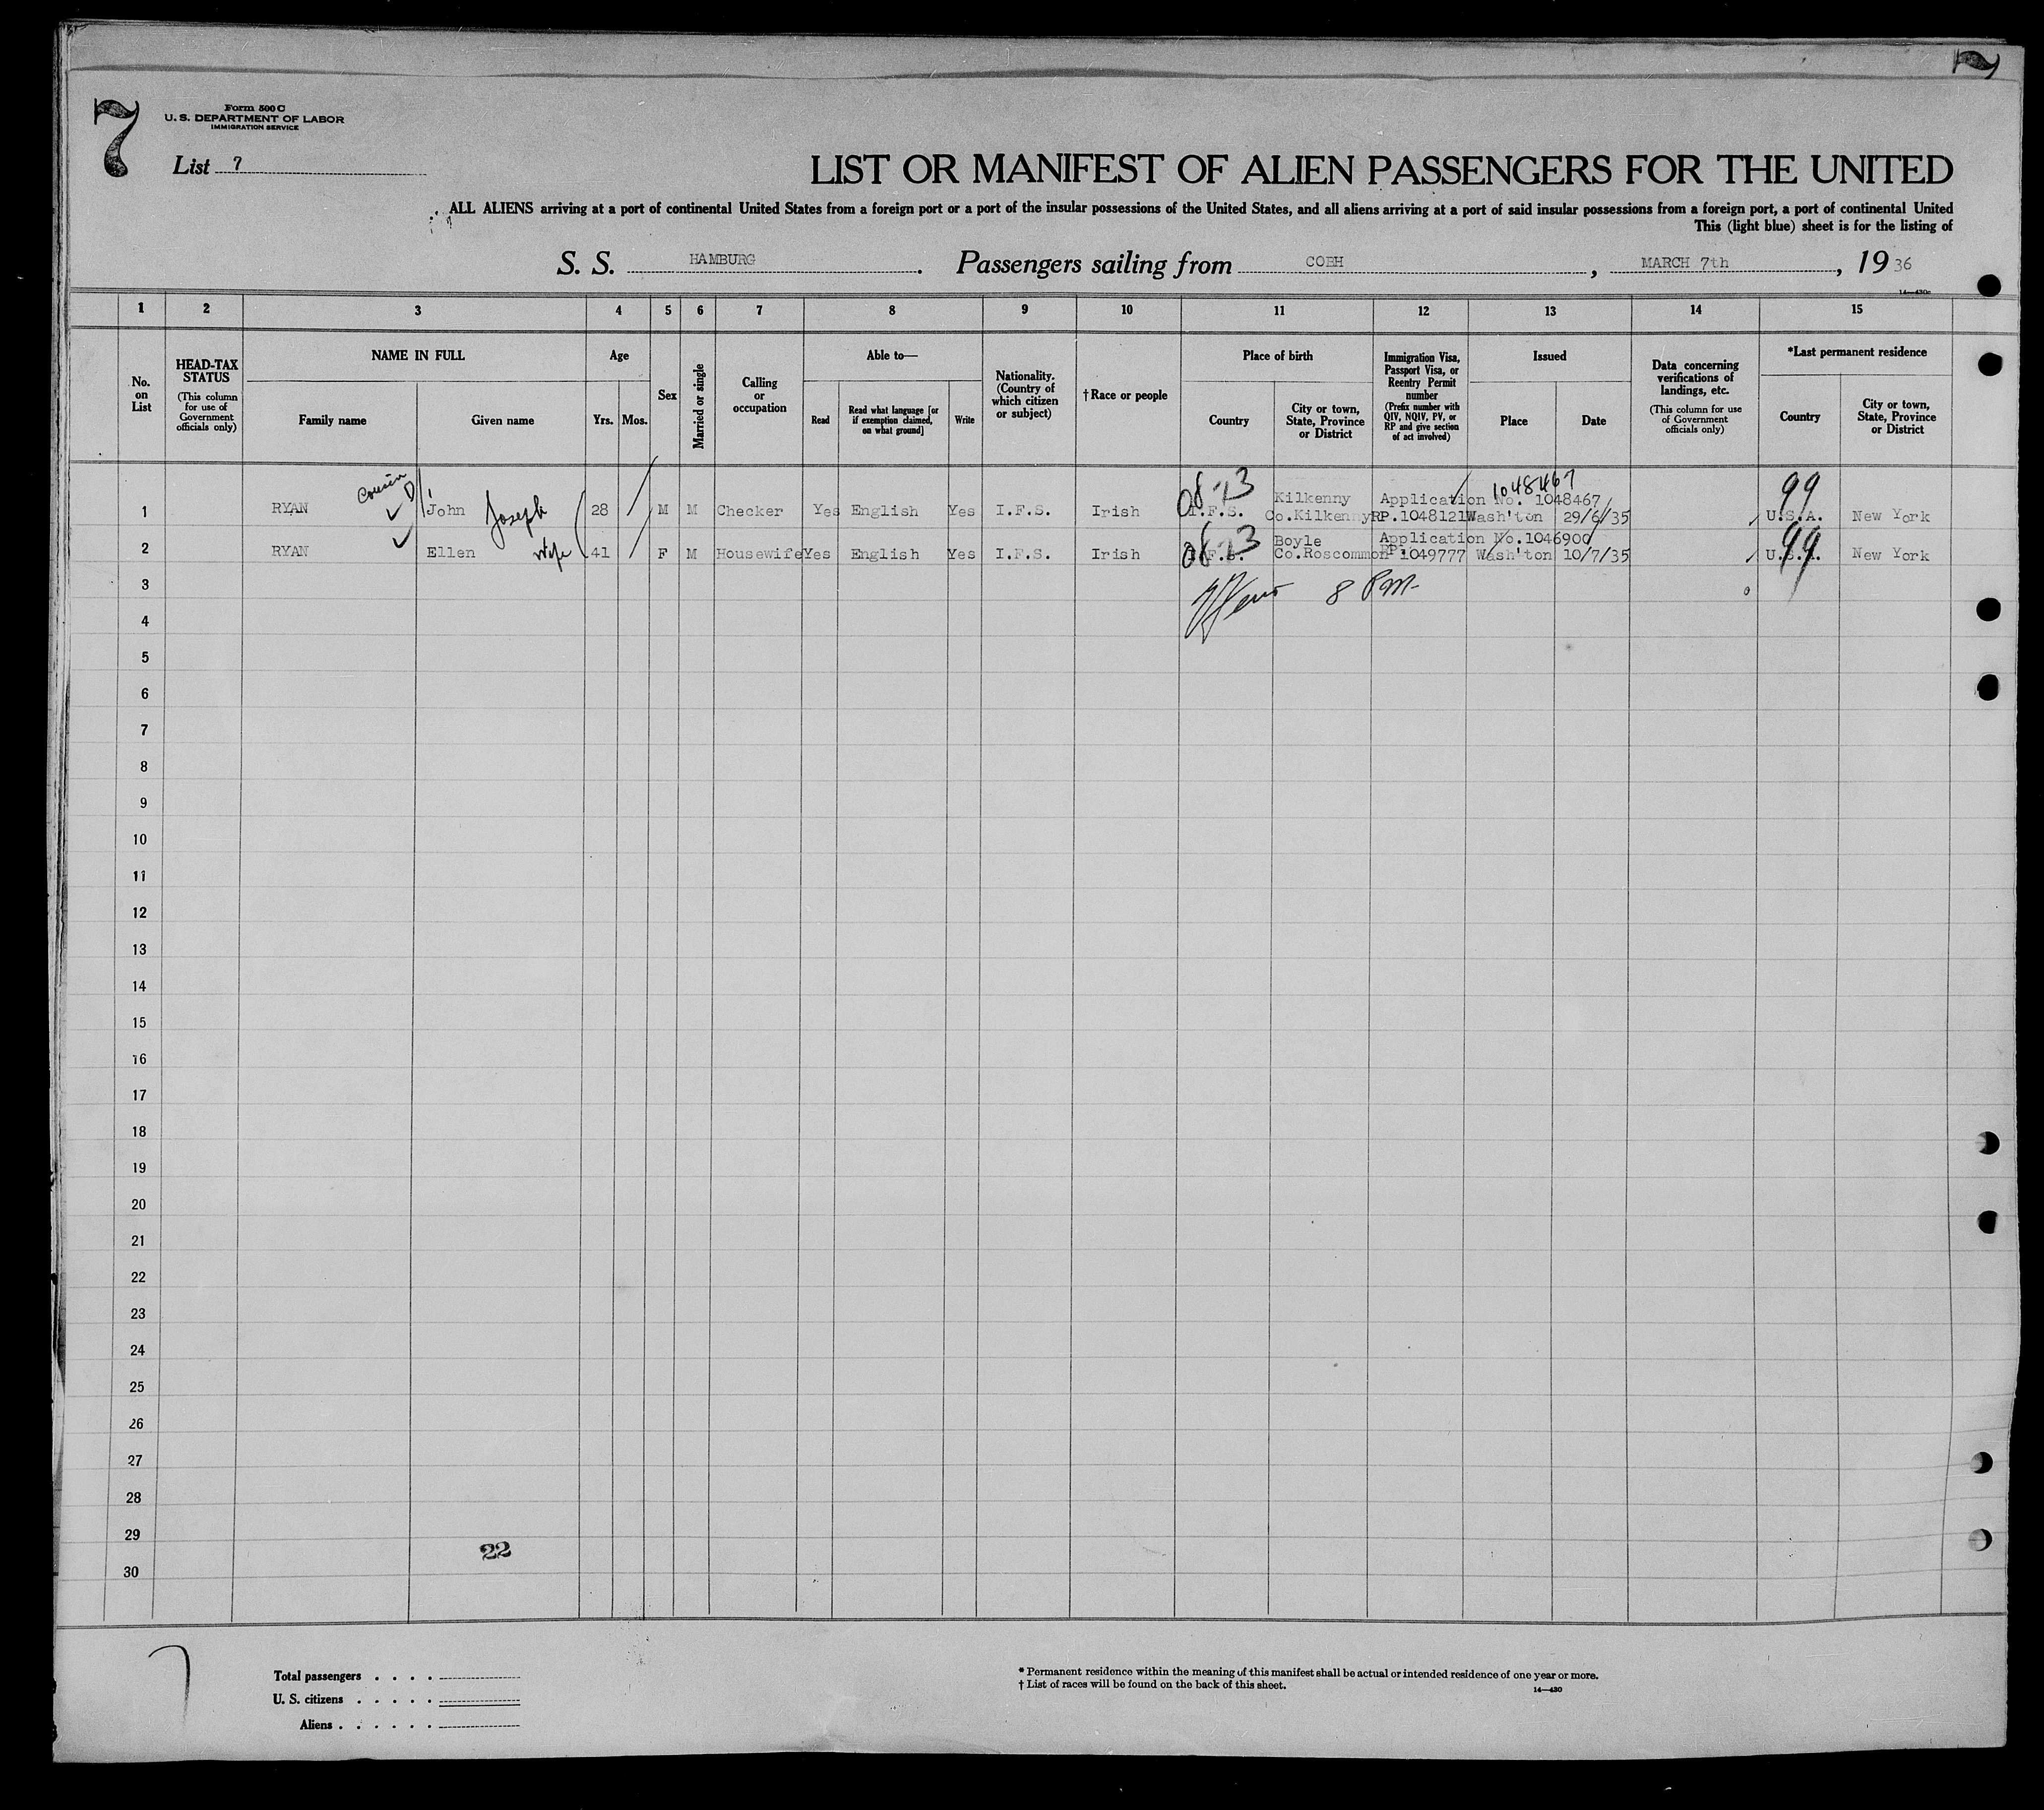 7
7
Form 500 C
U. S. DEPARTMENT OF LABOR
IMMIGRATION SERVICE
List 7
LIST OR MANIFEST OF ALIEN PASSENGERS FOR THE UNITED
ALL ALIENS arriving at a port of continental United States from a foreign port or a port of the insular possessions of the United States, and all aliens arriving at a port of said insular possessions from a foreign port, a port of continental United
This (light blue) sheet is for the listing of
S. S. HAMBURG. Passengers sailing from COBH, MARCH 7th, 1936
14—430c
1 2 3 4 5 6 7 8 9 10 11 12 13 14 15
No. on List
HEAD-TAX STATUS
(This column for use of Government officials only)
NAME IN FULL
Family name Given name
Age
Yrs. Mos.
Sex
Married or single
Calling or occupation
Able to—
Read Read what language [or if exemption claimed, on what ground] Write
Nationality. (Country of which citizen or subject)
†Race or people
Place of birth
Country City or town, State, Province or District
Immigration Visa, Passport Visa, or Reentry Permit number
(Prefix number with QIV, NQIV, PV, or RP and give section of act involved)
Issued
Place Date
Data concerning verifications of landings, etc.
(This column for use of Government officials only)
*Last permanent residence
Country City or town, State, Province or District
cousin 0873 1048467 99
Kilkenny Application No. 1048467
1 RYAN John Joseph 28 M M Checker Yes English Yes I.F.S. Irish I.F.S. Co.Kilkenny RP.1048121 Wash'ton 29/6/35 U.S.A. New York
0873 Boyle Application No.1046900 99
2 RYAN Ellen Wife 41 F M Housewife Yes English Yes I.F.S. Irish I.F.S. Co.Roscommon RP.1049777 Wash'ton 10/7/35 U.S.A. New York
3 8 PM
4
5
6
7
8
9
10
11
12
13
14
15
16
17
18
19
20
21
22
23
24
25
26
27
28
29
22
30
7
Total passengers . . . .
U. S. citizens . . . . .
Aliens . . . . . .
* Permanent residence within the meaning of this manifest shall be actual or intended residence of one year or more.
† List of races will be found on the back of this sheet.
14—430